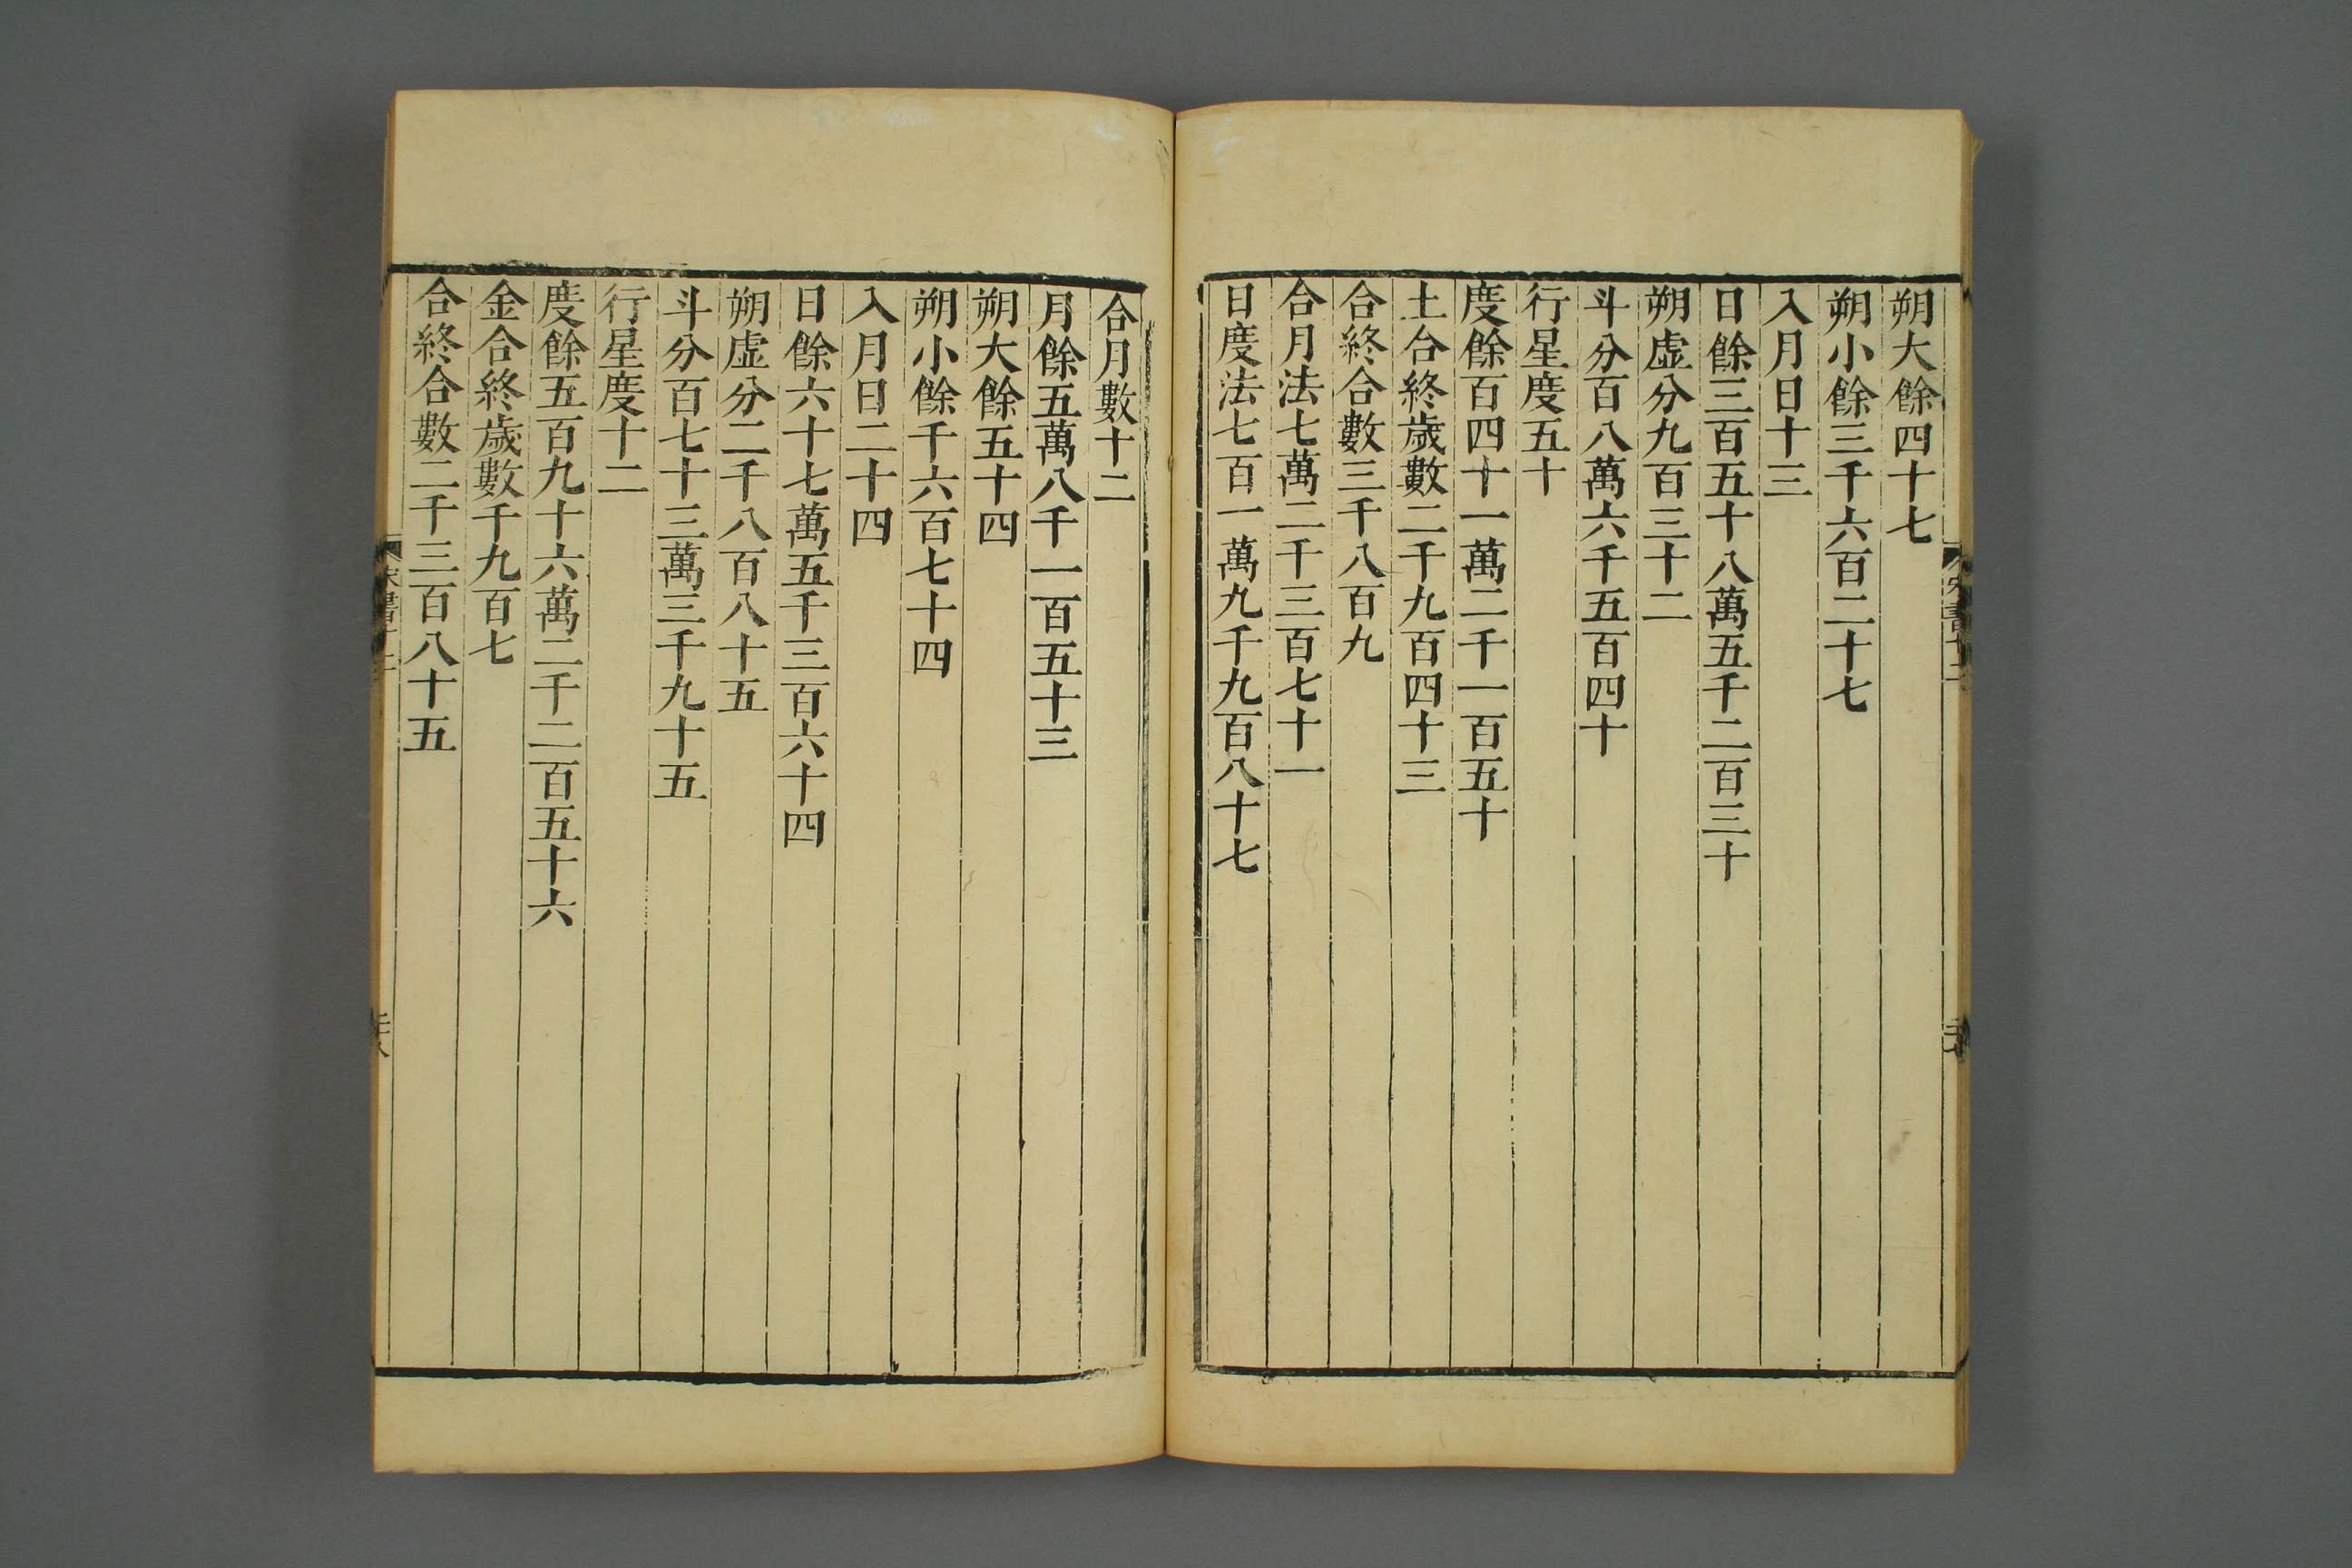 朔大餘四十七
朔小餘三千六百二十七
入月日十三
日餘三百五十八萬五千二百三十
朔虛分九百三十二
斗分百八萬六千五百四十
行星度五十
度餘百四十一萬二千一百五十
土合終歲數二千九百四十三
合終合數三千八百九
合月法七萬二千三百七十一
日度法七百一萬九千九百八十七
合月數十二
月餘五萬八千一百五十三
朔大餘五十四
朔小餘千六百七十四
入月日二十四
日餘六十七萬五千三百六十四
朔虛分二千八百八十五
斗分百七十三萬三千九十五
行星度十二
度餘五百九十六萬二千二百五十六
金合終歲數千九百七
合終合數二千三百八十五